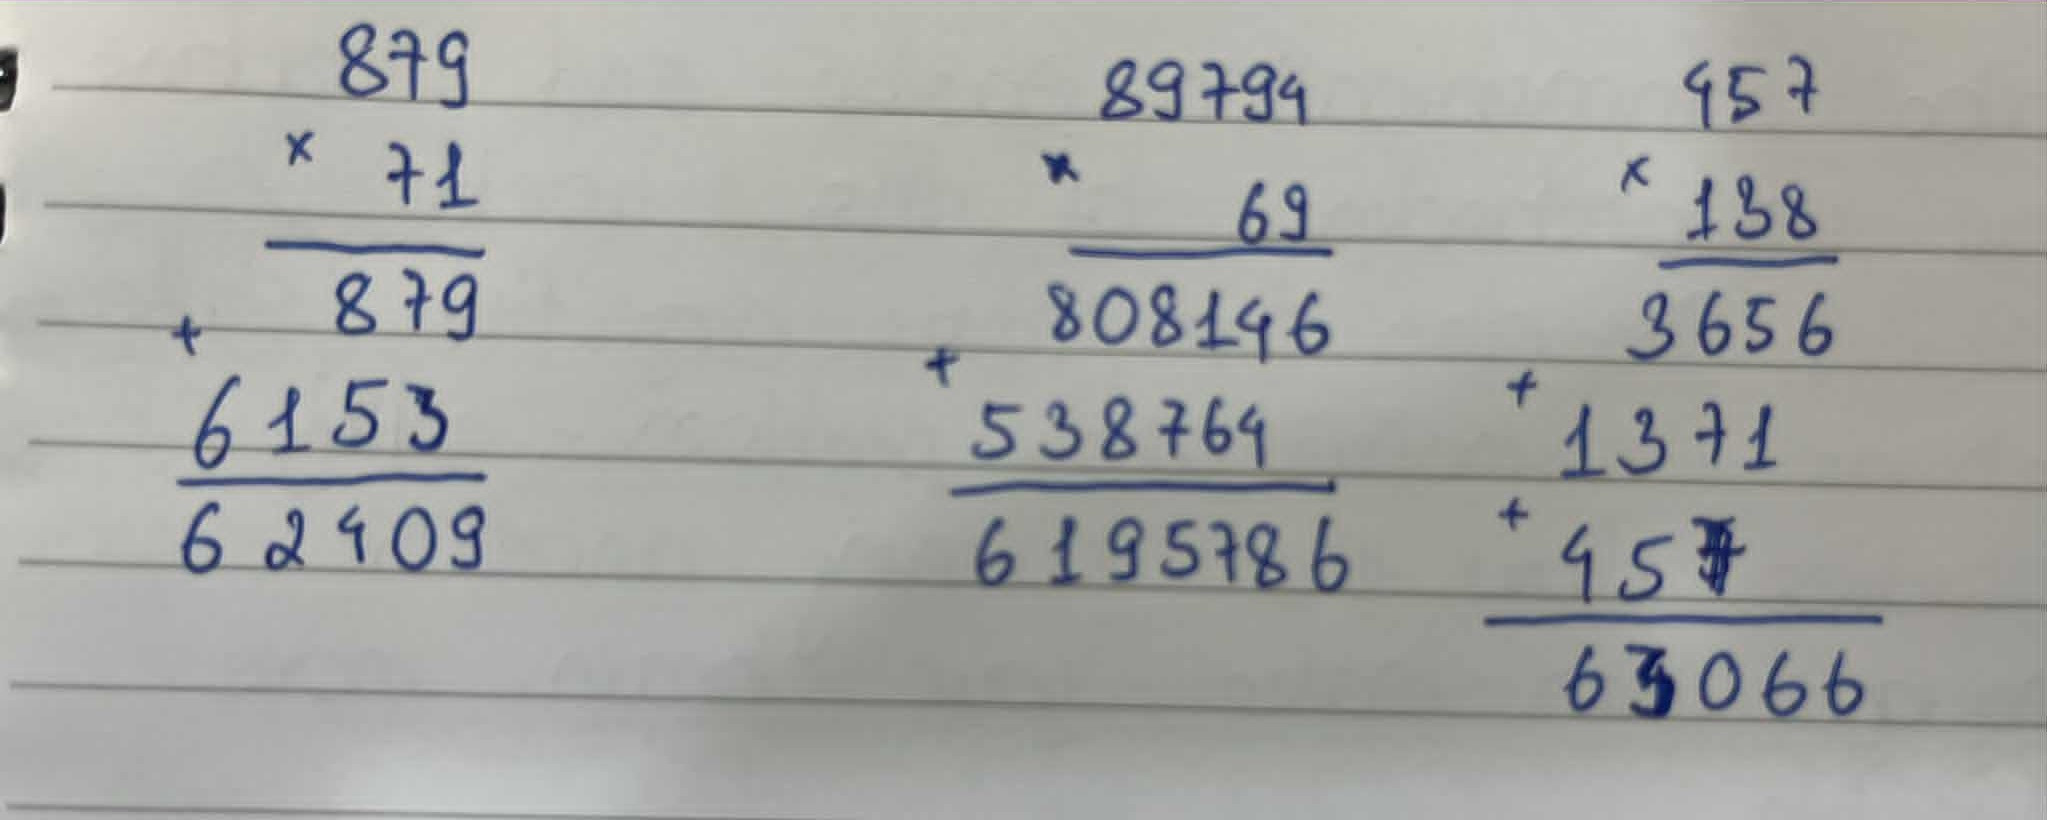 879
× 71
879
+
6153
62409
89794
× 69
808146
+
538764
6195786
457
× 138
3656
+
1371
+
457
63066